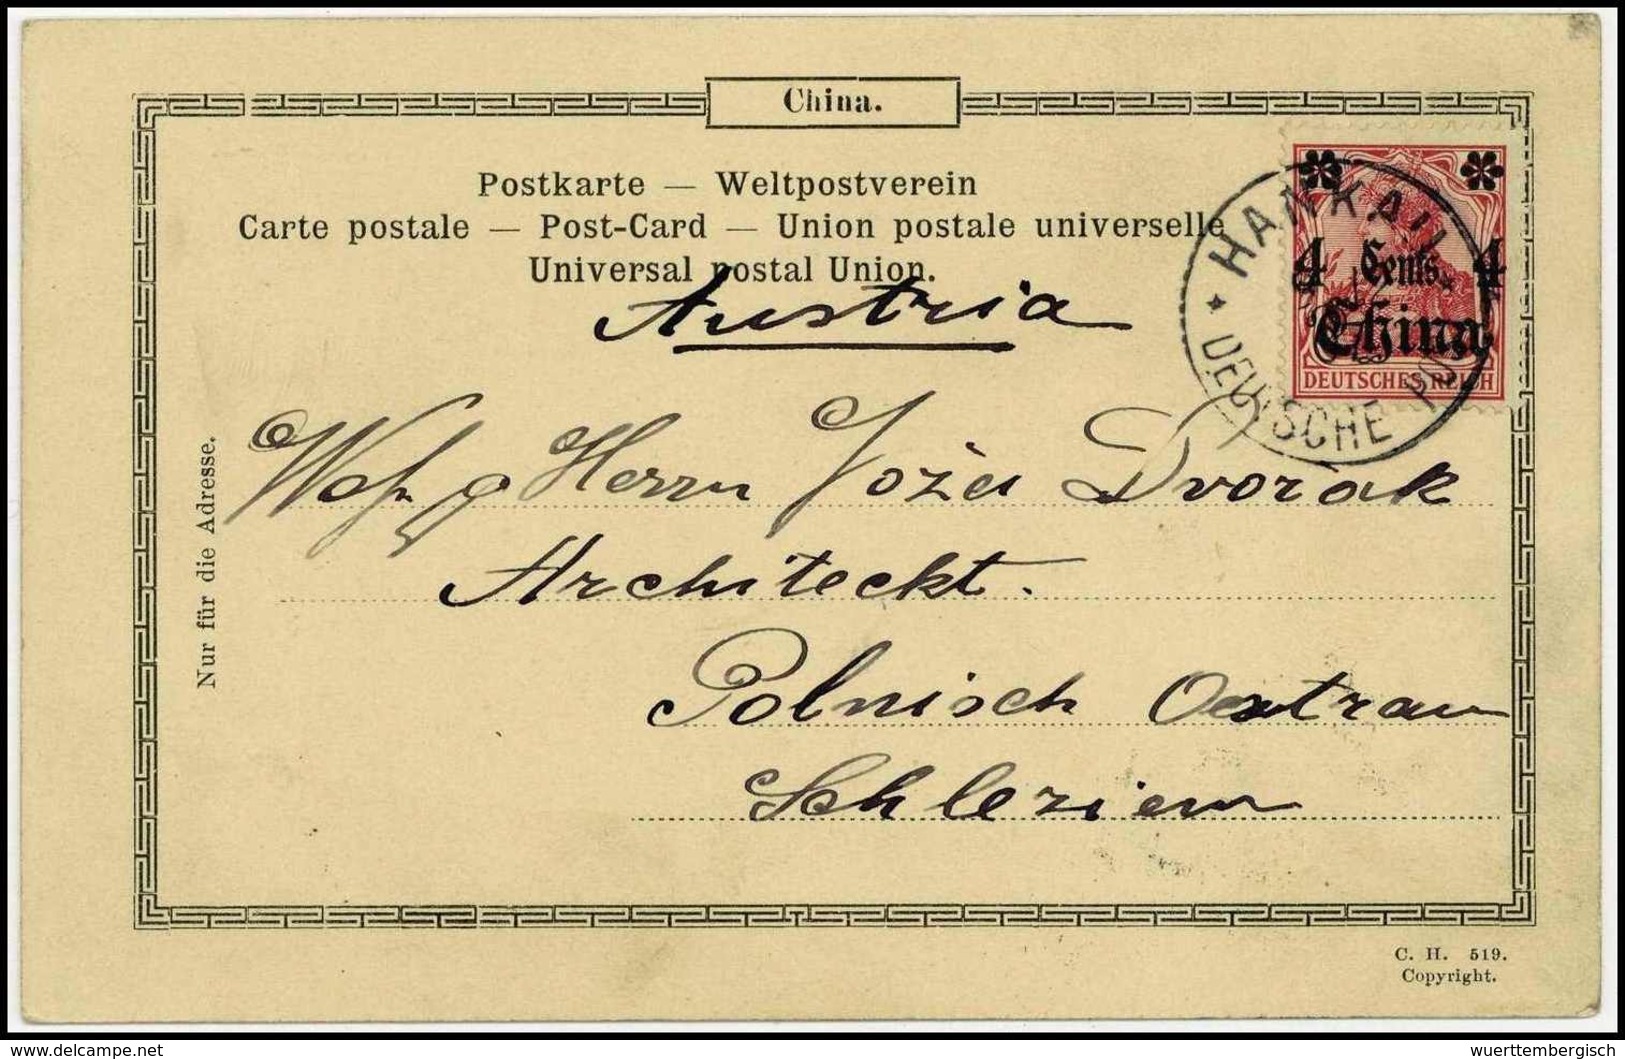 China.
Postkarte — Weltpostverein
Carte postale — Post-Card — Union postale universelle
Universal postal Union.
Austria
HANKAU
4 Cents 4
China
DEUTSCHES REICH
DEUTSCHE POST
Nur für die Adresse.
Herrn Dvorak
Architeckt.
Polnisch Ostrau
Schlezien
C. H. 519.
Copyright.
www.delcampe.net
wuerttembergisch